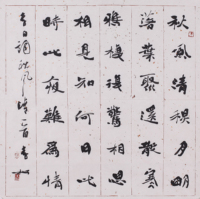 秋風清秋月明
落葉聚還散寒
鴉棲復驚相思
相見知何日此
時此夜難為情
李白詞秋風清